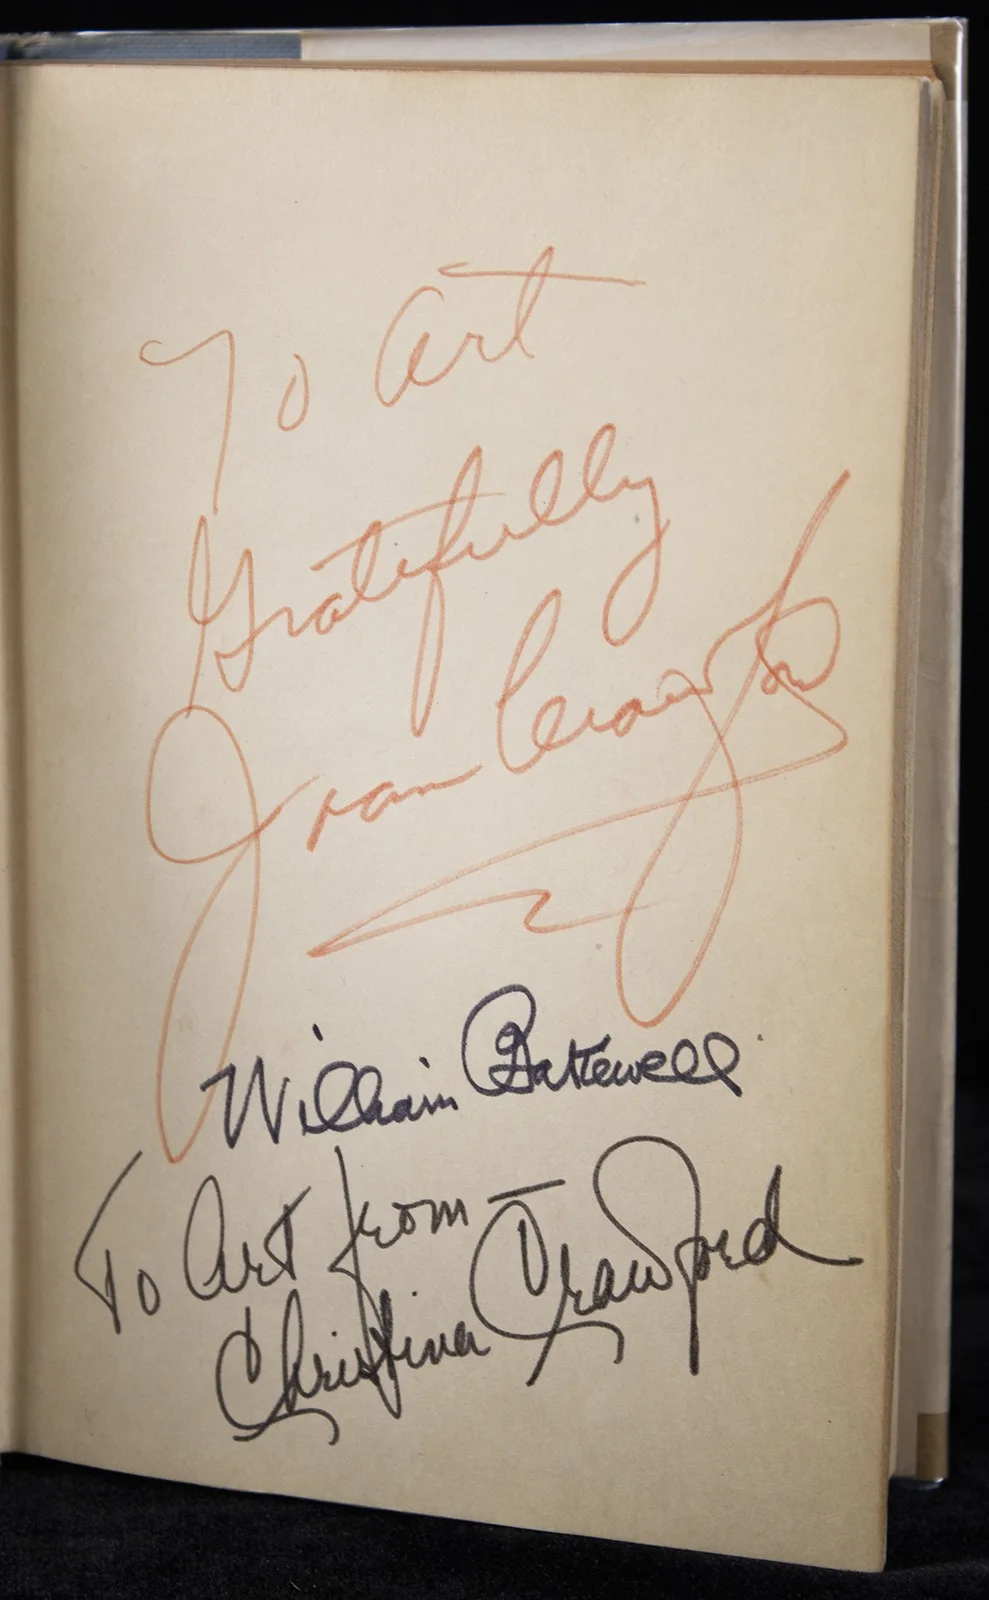 To Art
Gratefully
Joan Crawford
William Bakewell
To Art from
Christina Crawford